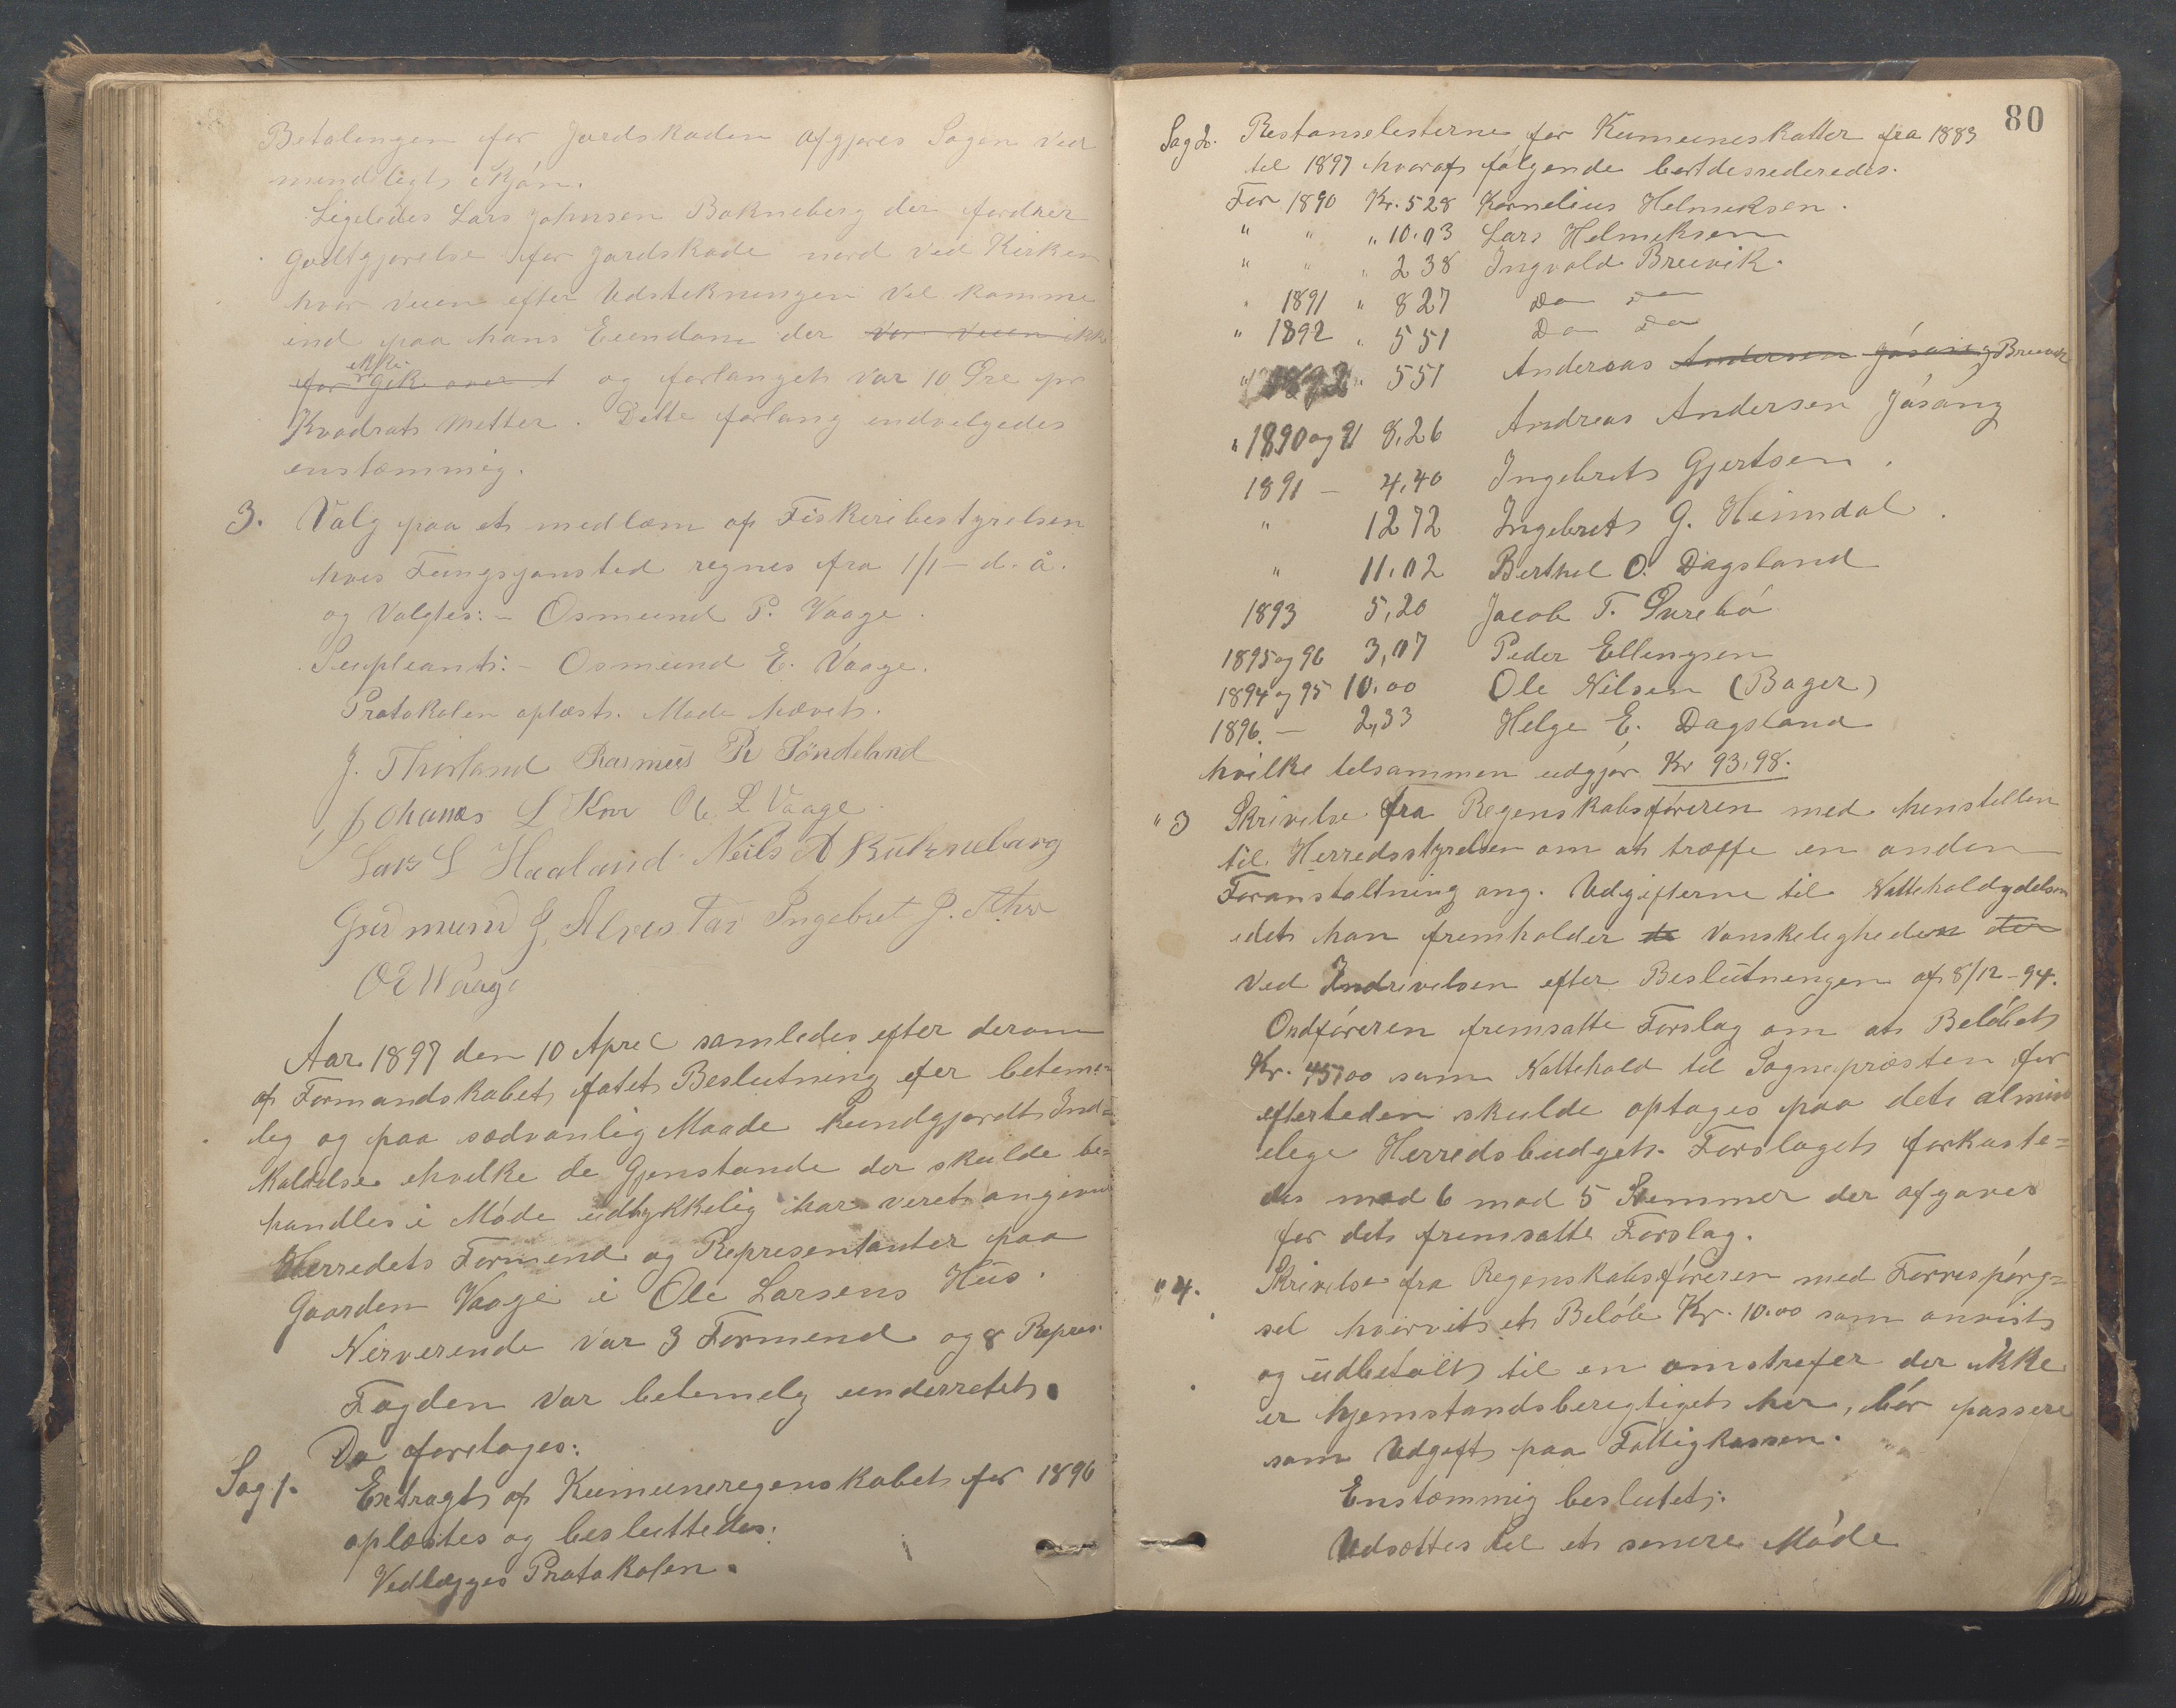 Betalingen for Jordskaden afgjøres Sagen ved
mindeligt Skjøn.
Ligeledes Lars Johnsen Bokneberg der fordrer
Godtgjørelse for Jordskade nord ved Kirken
hvor Veien efter Udstekningen vil komme
ind paa hans Eiendom der var veien ikke
ekke
for gik over og forlanget var 10 Øre pr
Kvadrat Metter. Dette forlang indvelgedes
enstemmig.
3. Valg paa et medlem af Fiskeribestyrelsen
hvis Fungsjonsted regnes fra 1/1 - d. å.
og Valgtes: - Osmund P. Vaage.
Supleant: - Osmund E. Vaage.
Protokolen oplæst. Møde hævet.
J. Thorland Rasmus R Søndeland
Johanes L Krv Ole L Vaage
Lars L Haaland Neils A Bukneberg
Gudmund G, Alvestad Ingebret J.
O E Waage
Aar 1897 den 10 April samledes efter derom
af Formandskabet fatet Beslutning efter betime-
lig og paa sedvanlig Maade kundgjordt Ind=
kaldelse hvilke de Gjenstande der skulde be=
handles i Møde udtykkelig har veret angivne
Herredets Formend og Representanter paa
Gaarden Vaage i Ole Larsens Hus.
Nerverende var 3 Formend og 8 Repres.
Fogden var betimelig underrettet.
Da foretoges:
Sag 1. Extragt af Kumuneregenskabet for 1896
oplæstes og besluttedes:
Vedlægges Protokolen.
80
Sag 2. Restanselisterne for Kumuneskatter fra 1883
til 1897 hvoraf følgende bortdessederedes.
For 1890 Kr. 528 Kornelius Helmeksen.
" " " 10.03 Lars Helmeksen
" " " 238 Ingvald Breivik.
" 1891 " 827 Do Do
" 1892 " 551 Do Do
" 1892 " 551 Andreas Andersen Jøsang Breivik
" 1890 og 91 8,26 Andreas Andersen Jøsang
1891 - 4,40 Ingebret Gjertsen.
" 1272 Ingebret G. Heimdal.
" 11.02 Berthel O. Dagsland
1893 5,20 Jacob T. Surebø
1895 og 96 3,07 Peder Ellingsen
1894 og 95 10.00 Ole Nilsen (Bager)
1896. - 2,33 Helge E. Dagsland
hvilke telsammen udgjør Kr 93.98.
" 3 Skrivelse fra Regenskabsføreren med henstillen
til Herredsstyrelsen om at træffe en anden
Foranstaltning ang. Udgifterne til Nattholdydelsen
idet han fremholder de Vanskeligheden der
ved Indrivelsen efter Beslutningen af 8/12-94.
Ordføreren fremsatte Forslag om at Beløbet
Kr. 45,00 som Natthold til Sognepræsten for
efterteden skulde optages paa det almind
elige Herredsbudget. Forslaget forkaste=
des med 6 mod 5 Stemmer der afgaves
for det fremsatte Forslag.
" 4. Skrivelse fra Regenskabsføreren med Forrespørg=
sel hvorvit et Beløb Kr. 10.00 som anvist
og udbetalt til en omstreifer der ikke
er hjemstandsberegtiget her, bør passere
som Udgift paa Fattigkassen.
Enstemmig beslutet:
Udsættes til et senere Møde